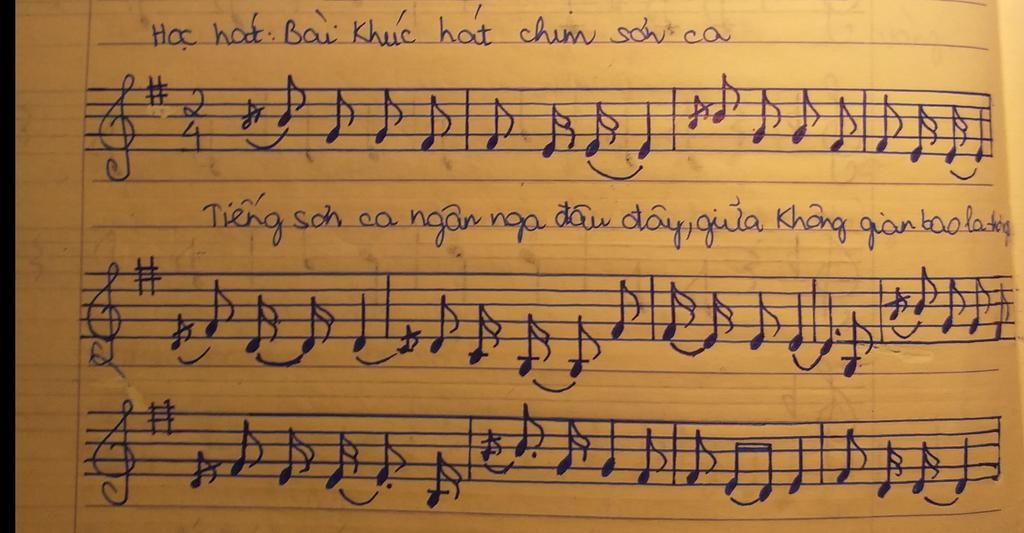 Học hát: Bài Khúc hát chim sơn ca
2
4
Tiếng sơn ca ngân nga đâu đây, giữa không gian bao la